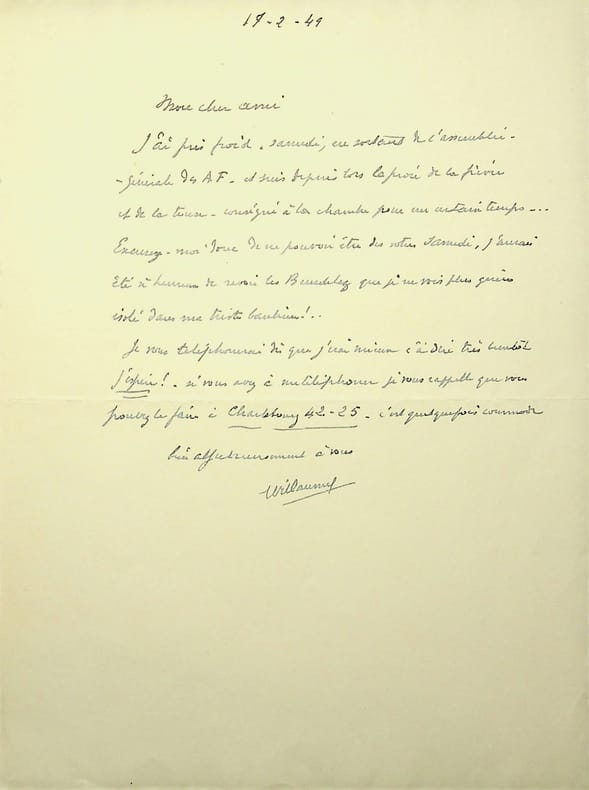 17-2-49
Mon cher ami
J'ai pris froid, samedi, en sortant de l'assemblée-
-générale des A F - et suis depuis lors la proie de la fièvre
et de la toux - consigné à la chambre pour un certain temps...
Excusez-moi donc de ne pouvoir être des votres samedi, j'aurais
été si heureux de revoir les que je ne vois plus guère
isolé dans ma triste banlieue!..
Je vous telephonerai dès que j'irai mieux c'à dire très bientôt
j'espère! - si vous avez à me téléphoner je vous rappelle que vous
pouvez le faire à 42-25 - c'est quelquefois commode
bien affectueusement à vous
Willaume